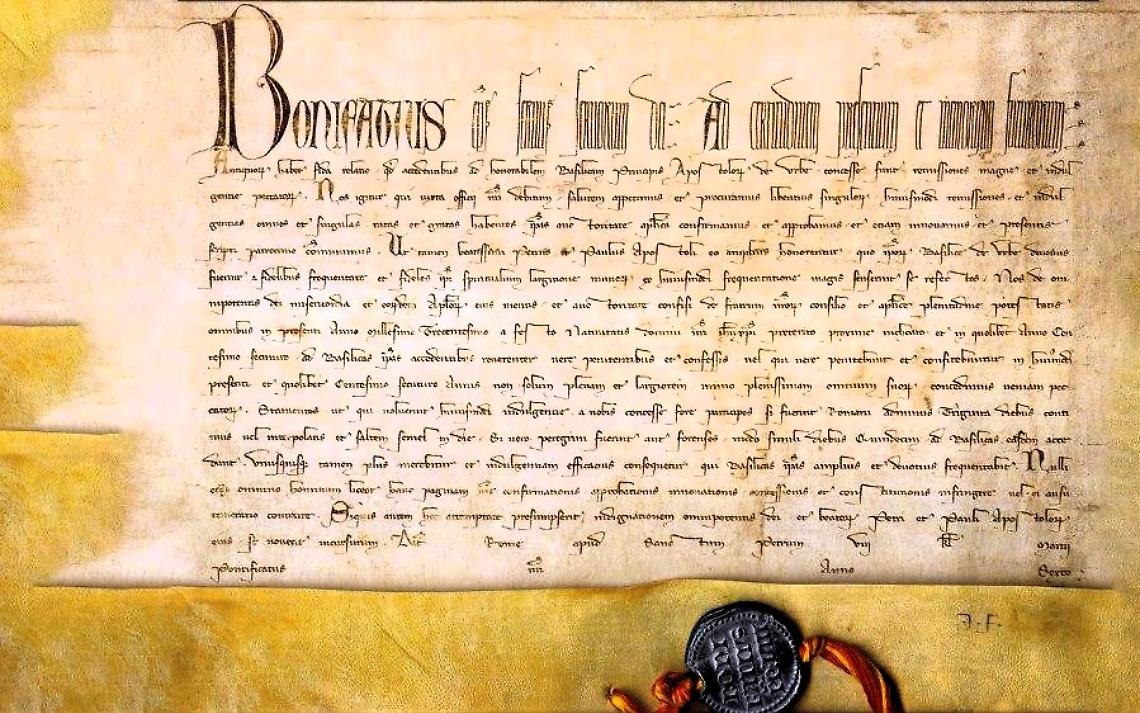 BONIFATIUS eps servus servorum dei. Ad certitudinem presentium et memoriam futurorum.
Antiquor habet fida relatio qd accedentibus ad honorabilem Basilicam Principis Apostolor de Urbe concesse sunt remissiones magne et indul
gentie peccator. Nos igitur qui iuxta officii nri debitum salutem appetimus et procuramus libentius singulor huiusmodi remissiones et indul
gentias omnes et singulas ratas et gratas habentes ipas auctoritate aplica confirmamus et approbamus et etiam innovamus et presentis
scripti patrocinio comunimus. Ut tamen beatissimi Petrus et Paulus Apostoli eo amplius honorentur quo ipor Basilice de Urbe devotius
fuerint a fidelibus frequentate et fideles ipi spiritualium largitione muner ex huiusmodi frequentatione magis senserint se refertos. Nos de om
nipotentis dei misericordia et eordem Aplor eius meritis et auctoritate confisi de fratrum nror consilio et aplice plenitudine potestatis
omnibus in presenti Anno Millesimo Trecentesimo a festo Nativitatis domini nri preterito proxime inchoato et in quolibet Anno Cen
tesimo secuturo ad Basilicas ipas accedentibus reverenter vere penitentibus et confessis vel qui vere penitebunt et confitebuntur in huiusmodi
presenti et quolibet Centesimo secuturo Annis non solum plenam et largiorem immo plenissimam omnium suor concedimus veniam pec
cator. Statuentes ut qui voluerint huiusmodi indulgentie a nobis concesse fore participes si fuerint Romani ad minus Triginta diebus conti
nuis vel interpolatis et saltem semel in die. Si vero peregrini fuerint aut forenses modo simili diebus Quindecim ad Basilicas easdem acce
dant. Unusquisque tamen plus merebitur et indulgentiam efficacius consequetur qui Basilicas ipas amplius et devotius frequentabit. Nulli
ergo omnino hominum liceat hanc paginam nre confirmationis approbationis innovationis concessionis et constitutionis infringere vel ei ausu
temerario contraire. Siquis autem hoc attemptare presumpserit indignationem omnipotentis dei et beator Petri et Pauli Apostolor
eius se noverit incursurum. Dat Rome apud Sanctum Petrum viii kl Martii
Pontificatus nri Anno Sexto.